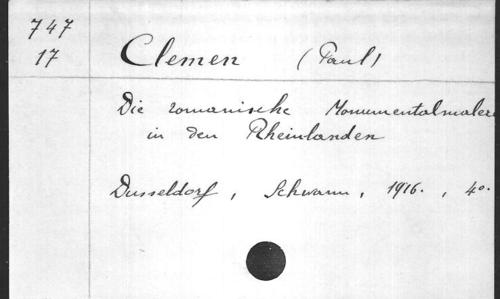 747
17
Clemen (Paul)
Die romanische Monumentalmalere
in den Rheinlanden
Dusseldorf, Schwann, 1916., 4o.